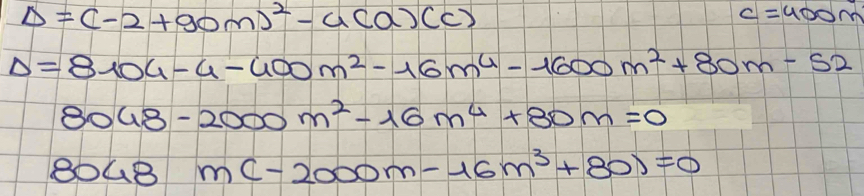 Δ=(-2+90m)² - 4(a)(c) c=400m
Δ=8104-4-400m²-16m⁴-1600m²+80m-52
8048-2000m²-16m⁴+80m=0
8048 m(-2000m-16m³+80)=0